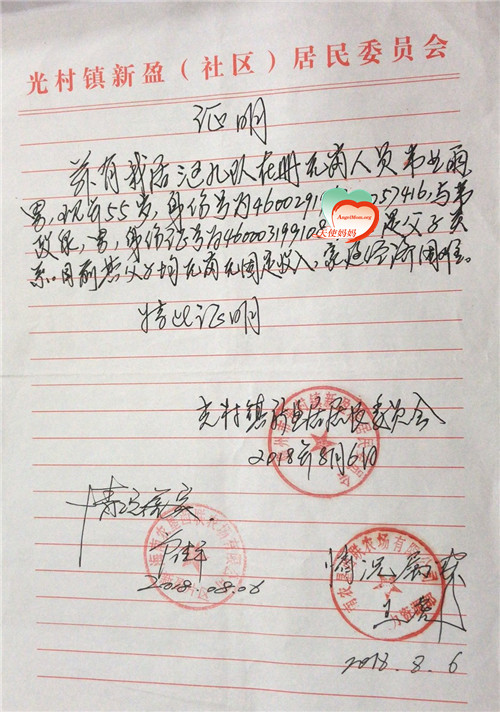 光村镇新盈(社区)居民委员会
证明
兹有我居 队在册无岗人员韦
男,现年55岁,身份证号为4600291 057416,与韦
,男,身份证号为46000319910 是父子关
系。目前父子均无岗无固定收入,家庭经济困难。
特此证明
光村镇新盈居居民委员会
2018年8月6日
情况属实.
2018.08.06
情况属实
王
2018.8.6
AngelMom.org
天使妈妈